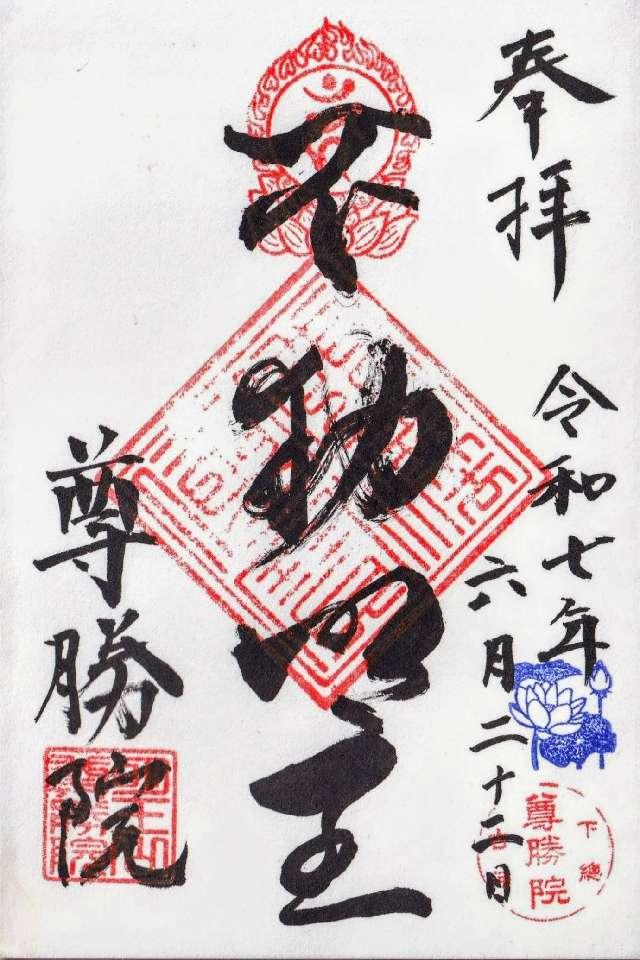 奉拝
令和七年
六月二十二日
不動明王
尊勝院
下總
尊勝院